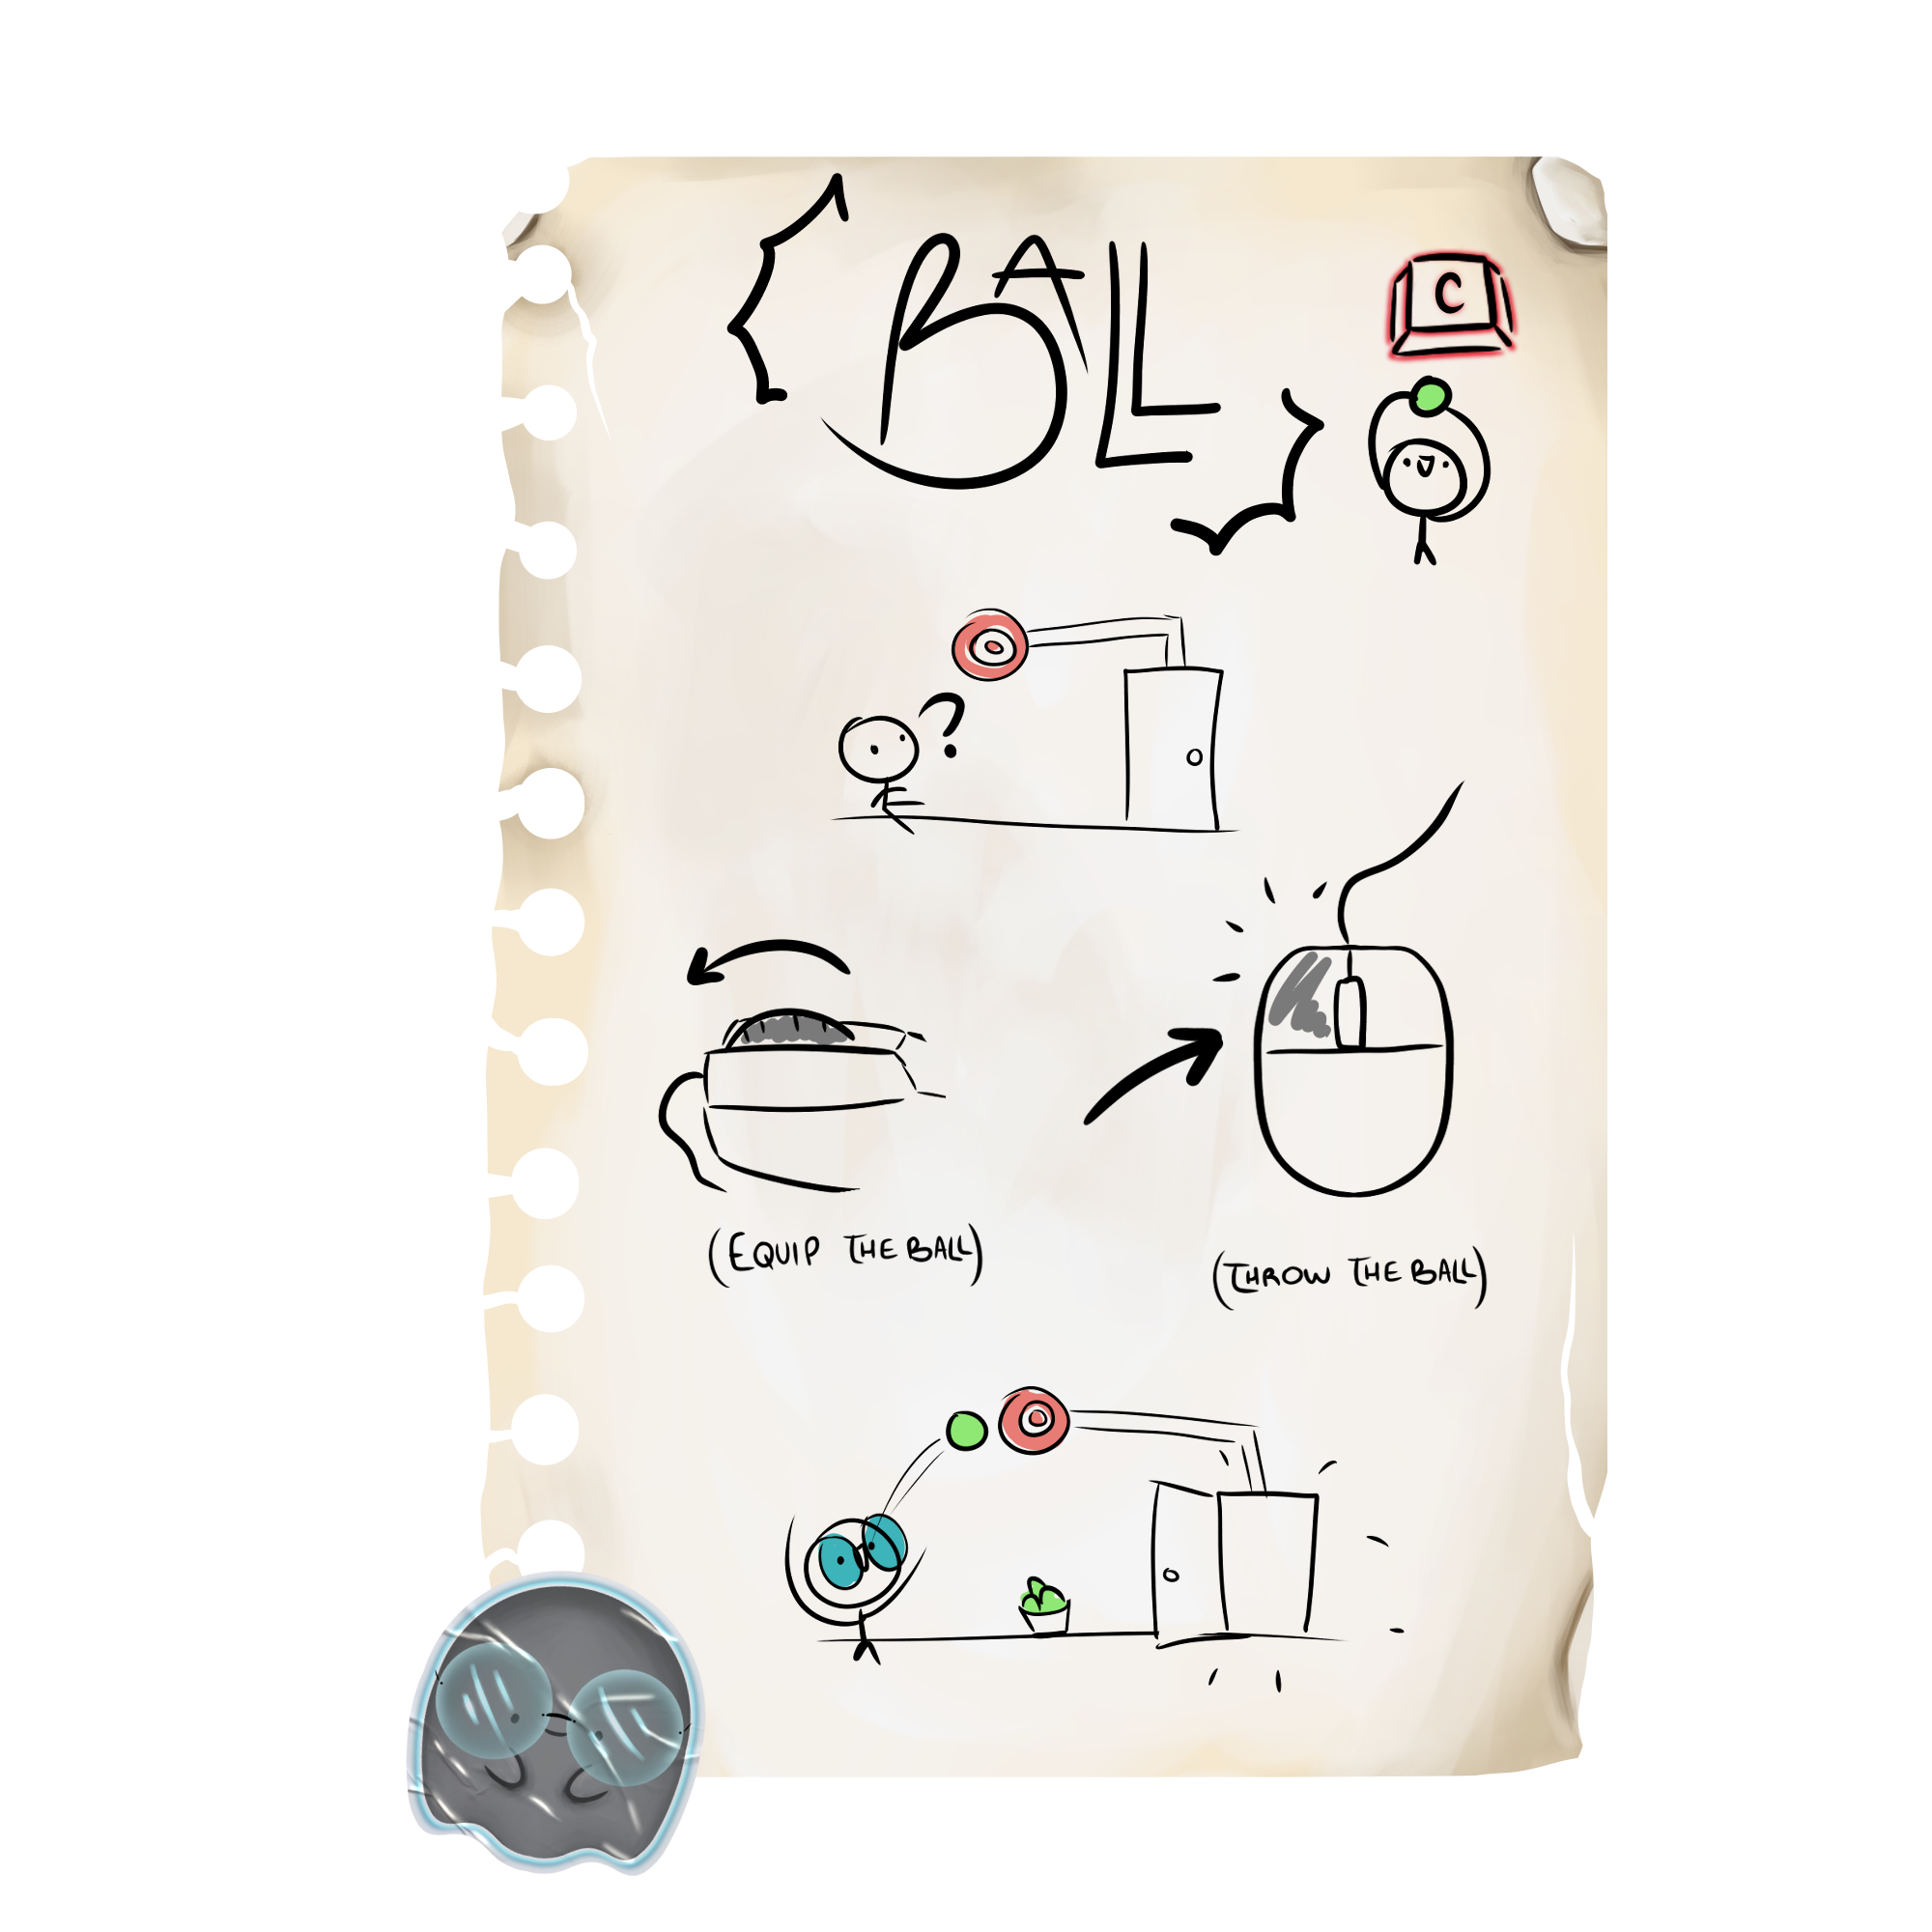 BALL
C
?
(EQUIP THE BALL)
(THROW THE BALL)